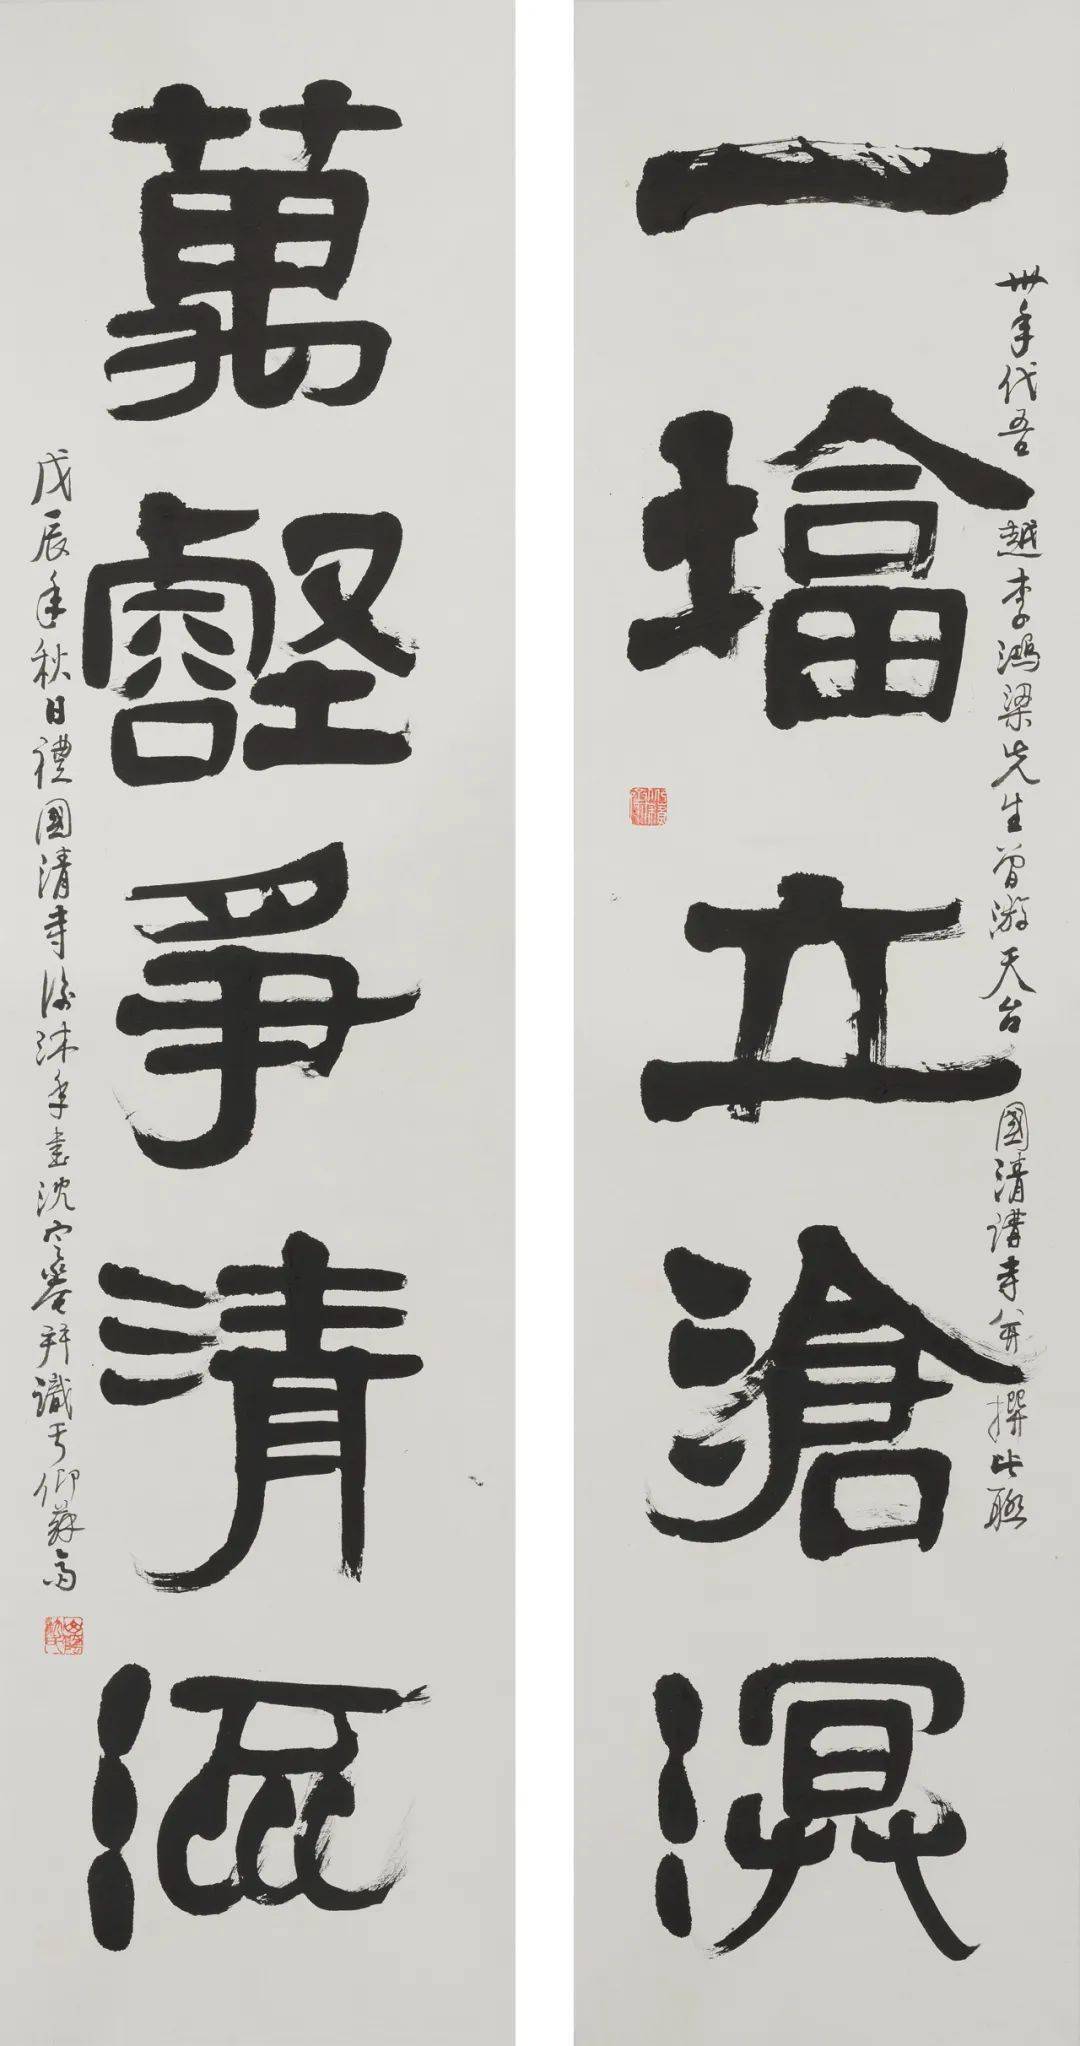 一墖立滄溟
卅年代吾越李鴻梁先生曾游天台國清講寺并撰此聯
萬壑爭清流
戊辰年秋日禮國清寺後沐手書沈定庵拜識于仰蘇齋